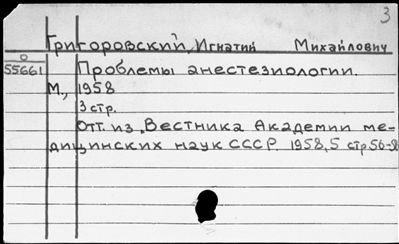 3
Григоровский, Игнатий Михайлович
О
55661
Проблемы анестезиологии.
М., 1958
3 стр.
Отт. из „Вестника Академии ме-
дицинских наук СССР. 1958, 5 стр 56-